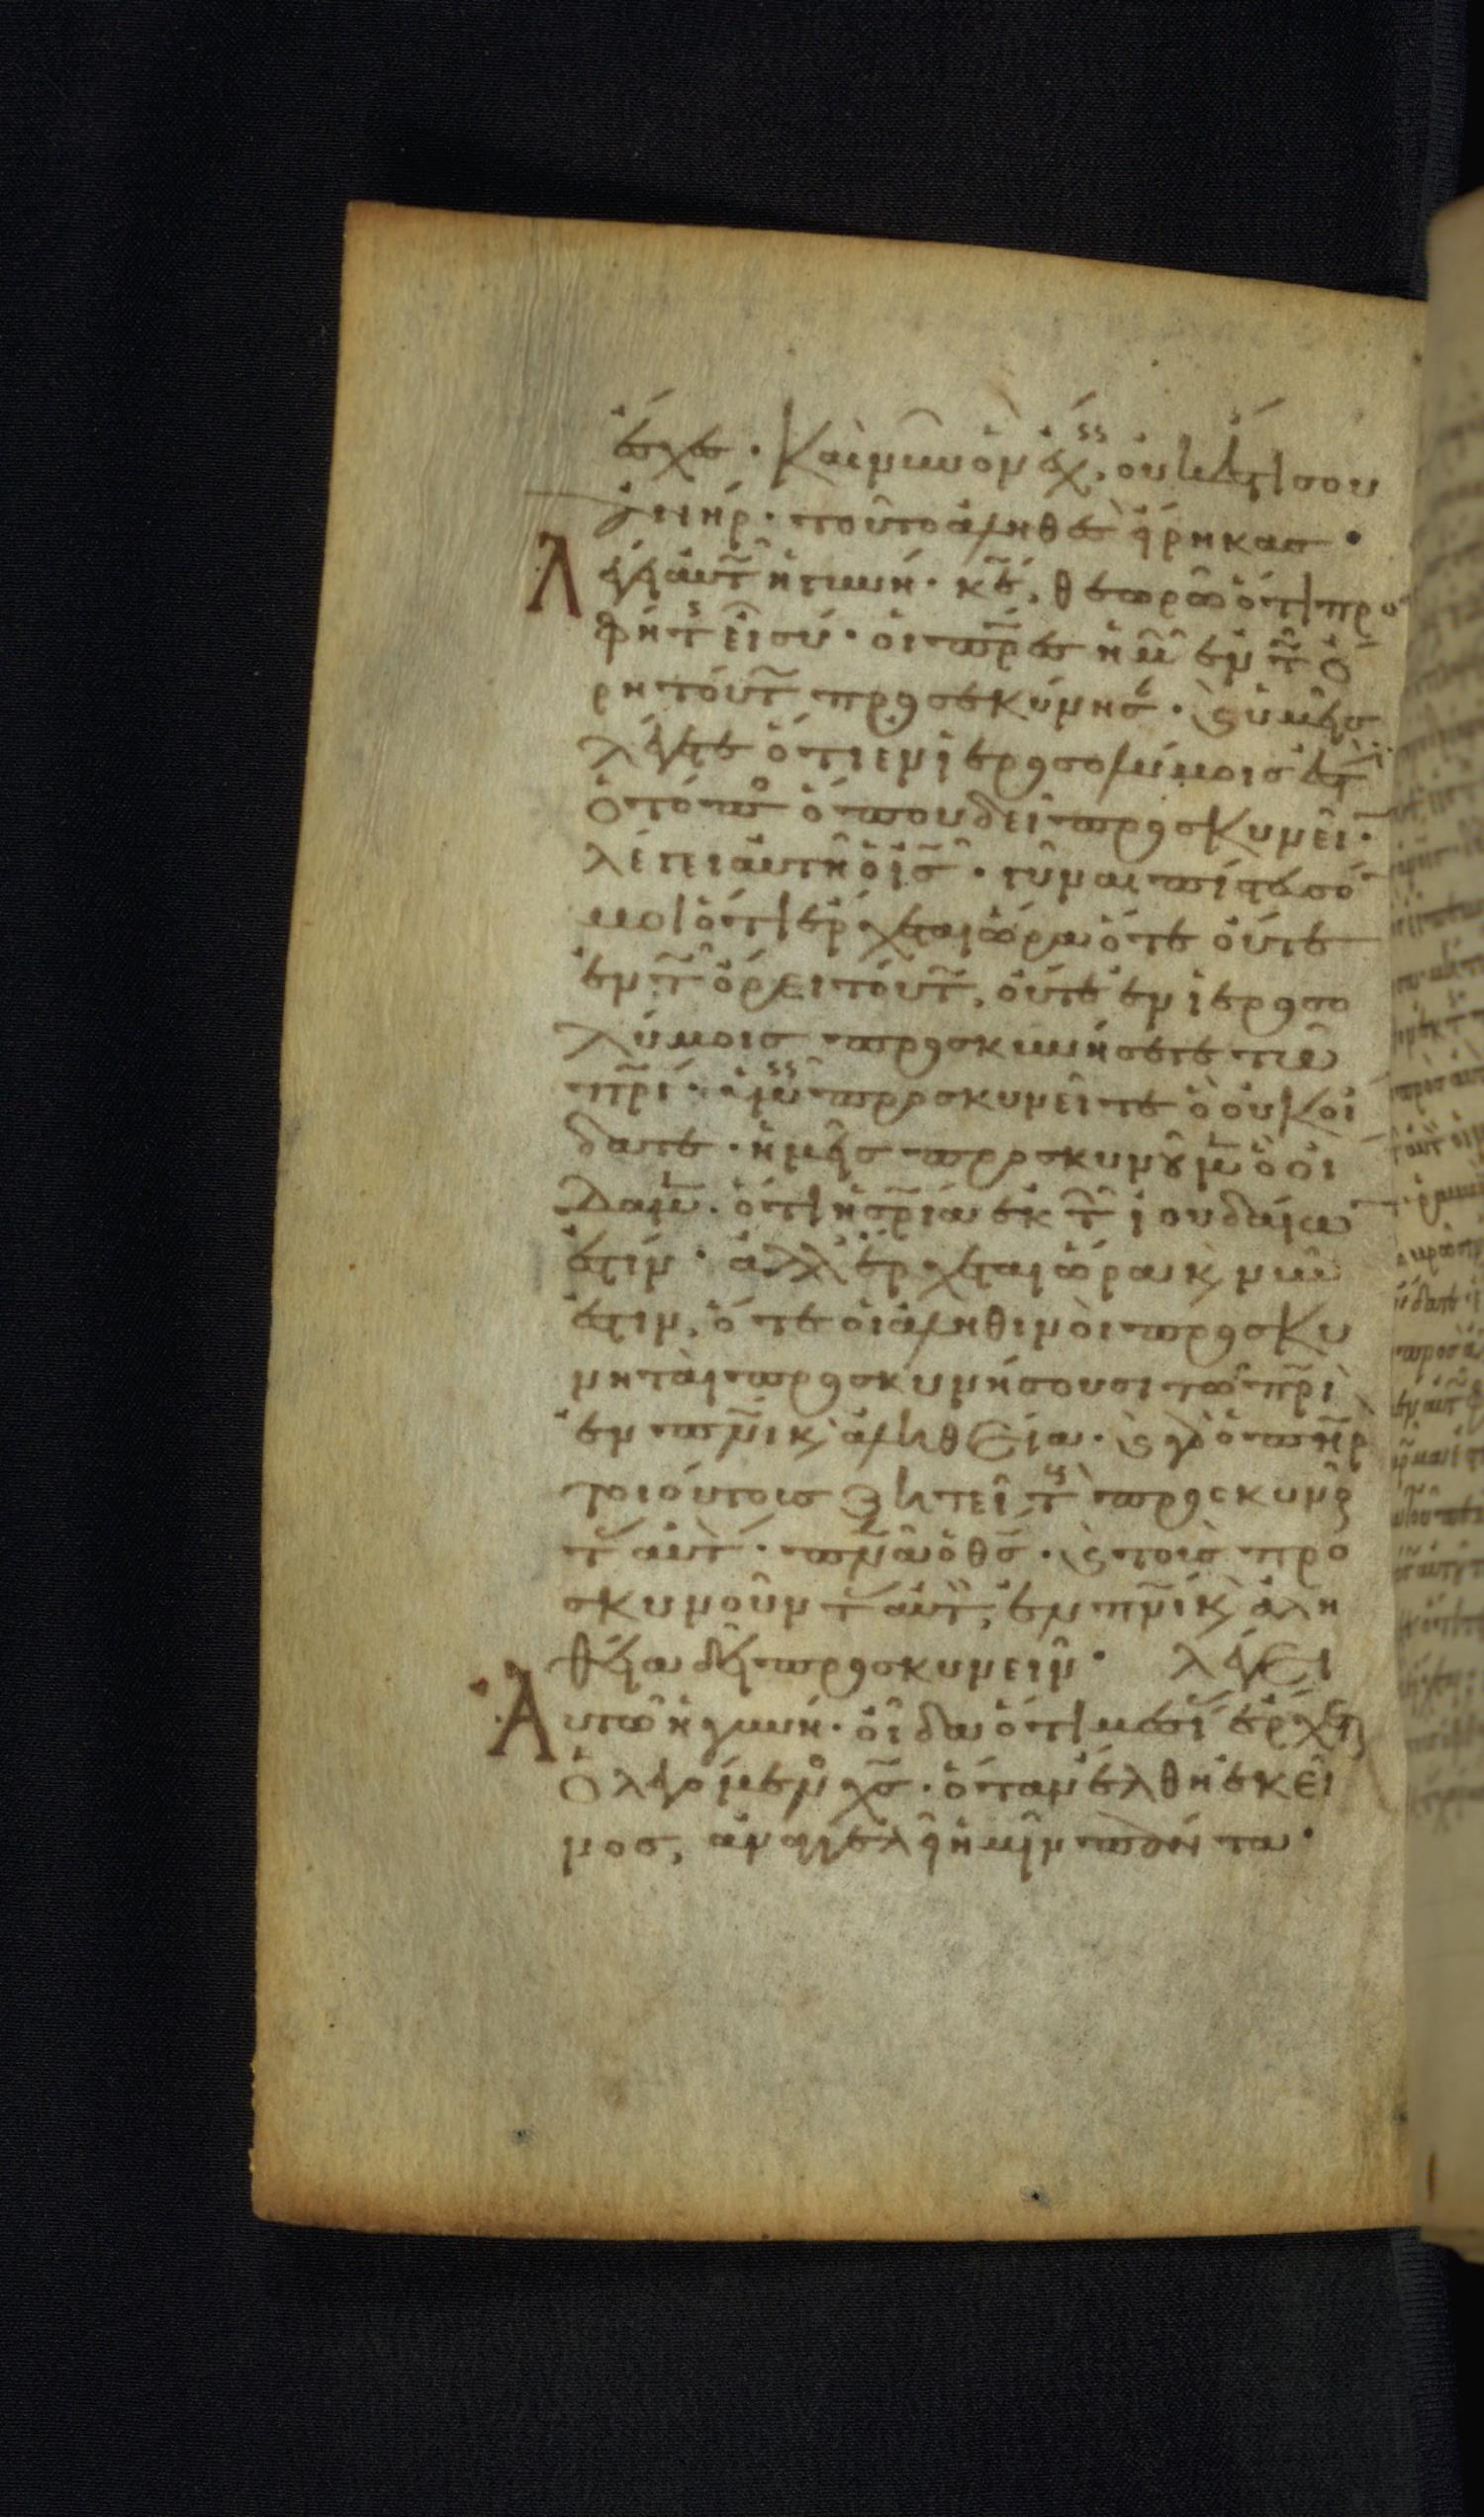 ἔσχες· Καὶ νῦν ὃν ἔχεις, οὐκ ἔστι σου
ἀνήρ· τοῦτο ἀληθὲς εἴρηκας·
Λέγει αὐτῶ ἡ γυνή· κ̅ε̅, θεωρῶ ὅτι προ
φήτης εἶ σύ· οἱ π̅ρ̅ε̅ς ἡμῶν ἐν τῶ ὄ
ρη τούτω προσεκύνησαν· ϗ ὑμεῖς
λέγετε ὅτι ἐν ἱεροσολύμοις ἐστὶν
ὁ τόπος ὅπου δεῖ προσκυνεῖν·
λέγει αὐτῆ ὁ ι̅ς̅· γύναι πίστευσόν
μοι ὅτι ἔρχεται ὥρα ὅτε οὔτε
ἐν τῶ ὄρει τούτω, οὔτε ἐν ἱεροσο
λύμοις προσκυνήσετε τῶ
π̅ρ̅ι̅· ὑμεῖς προσκυνεῖτε ὃ οὐκ οἴ
δατε· ἡμεῖς προσκυνοῦμεν ὃ οἴ
δαμεν· ὅτι ἡ σ̅ρ̅ία ἐκ τῶν ἰουδαίων
ἐστίν· ἀλλ' ἔρχεται ὥρα ϗ νῦν
ἐστιν, ὅτε οἱ ἀληθινοὶ προσκυ
νηταὶ προσκυνήσουσι τῶ π̅ρ̅ι̅
ἐν π̅ν̅ι̅ ϗ ἀληθεία· ϗ γὰρ ὁ π̅η̅ρ̅
τοιούτους ζητεῖ τοὺς προσκυνοῦν
τας αὐτόν· π̅ν̅α̅ ὁ θ̅ς̅· ϗ τοὺς προ
σκυνοῦντας αὐτὸν, ἐν π̅ν̅ι̅ ϗ ἀλη
θεία δεῖ προσκυνεῖν· λέγει
Αὐτῶ ἡ γυνή· οἶδα ὅτι μεσίας ἔρχεται
ὁ λεγόμενος χ̅ς̅· ὅταν ἔλθη ἐκεῖ
νος, ἀναγγελεῖ ἡμῖν πάντα·